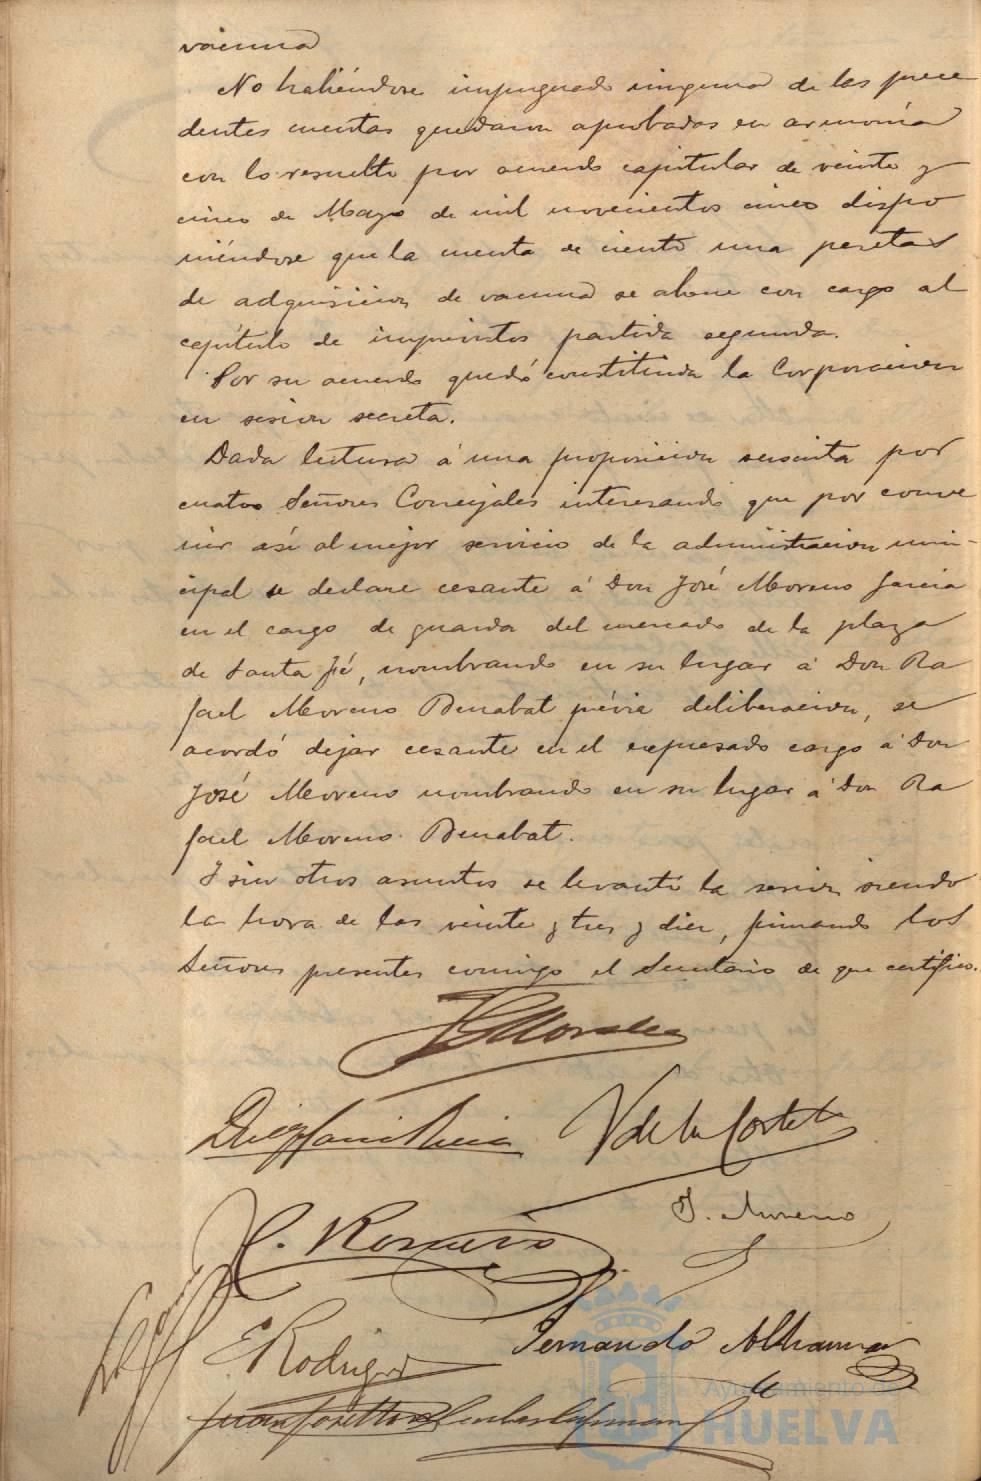 vacuna
No habiéndose impugnado ninguna de las prece
dentes cuentas quedaron aprobadas en armonía
con lo resuelto por acuerdo capitular de veinte y
cinco de Mayo de mil novecientos cinco dispo
niéndose que la cuenta de ciento una pesetas
de adquisicion de vacuna se abone con cargo al
capítulo de imprevistos partida segunda.
Por su acuerdo quedó constituida la Corporacion
en sesion secreta.
Dada lectura á una proposicion suscrita por
cuatro Señores Concejales interesando que por conve
nir así al mejor servicio de la administracion muni-
cipal se declare cesante á Don José Moreno Garcia
en el cargo de guarda del mercado de la plaza
de Santa Fé, nombrando en su lugar á Don Ra
fael Moreno Benabat prévia deliberacion, se
acordó dejar cesante en el expresado cargo á Don
José Moreno nombrando en su lugar á Don Ra
fael Moreno Benabat.
Y sin otros asuntos se levantó la sesion siendo
la hora de las veinte y tres y diez, firmando los
Señores presentes conmigo el Secretario de que certifico.
Morales
V de la Corte
J. Moreno
C. Romero
E. Rodrigz
Fernando Alhama
Juan José
Ayuntamiento de
HUELVA